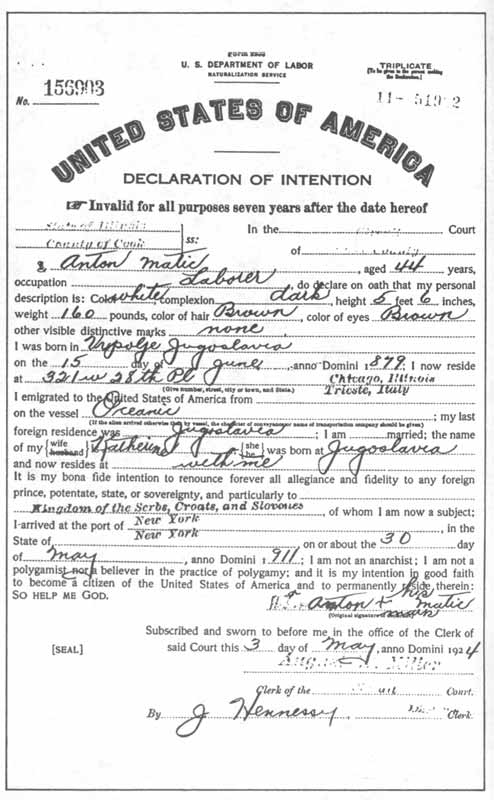 FORM 2203
U. S. DEPARTMENT OF LABOR
NATURALIZATION SERVICE
TRIPLICATE
[To be given to the person making the Declaration.]
No. 156903
UNITED STATES OF AMERICA
DECLARATION OF INTENTION
☞ Invalid for all purposes seven years after the date hereof
State of Illinois
County of Cook ss: In the Court
of County
I, Anton Matic, aged 44 years,
occupation Laborer, do declare on oath that my personal
description is: Color white complexion dark, height 5 feet 6 inches,
weight 160 pounds, color of hair Brown, color of eyes Brown
other visible distinctive marks none
I was born in Vrpolje Jugoslavia
on the 15 day of June, anno Domini 1879; I now reside
at 321 W 28th Pl Chicago, Illinois
(Give number, street, city or town, and State.)
I emigrated to the United States of America from Trieste, Italy
on the vessel Oceanic; my last
(If the alien arrived otherwise than by vessel, the character of conveyance or name of transportation company should be given.)
foreign residence was Jugoslavia; I am married; the name
of my {wife husband} Katherine {she he} was born at Jugoslavia
and now resides at with me
It is my bona fide intention to renounce forever all allegiance and fidelity to any foreign
prince, potentate, state, or sovereignty, and particularly to
Kingdom of the Serbs, Croats, and Slovenes, of whom I am now a subject;
I arrived at the port of New York, in the
State of New York on or about the 30 day
of May, anno Domini 1911; I am not an anarchist; I am not a
polygamist nor a believer in the practice of polygamy; and it is my intention in good faith
to become a citizen of the United States of America and to permanently reside therein:
SO HELP ME GOD.
Anton + his mark Matic
(Original signature
Subscribed and sworn to before me in the office of the Clerk of
[SEAL] said Court this 3 day of May, anno Domini 1924
August W. Miller
Clerk of the Court.
By J Hennessy, Clerk.